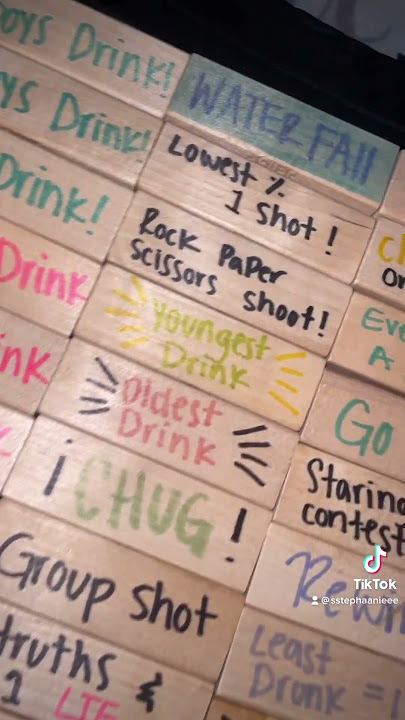 Boys Drink!
Boys Drink!
Drink!
Drink
WATERFAll
Lowest %
1 Shot!
Rock Paper
Scissors Shoot!
Youngest
Drink
Oldest
Drink
¡CHUG!
Group Shot
truths &
1 LIE
Go
Staring
contest
Least
Drunk = 1
TikTok
@sstephaanieee